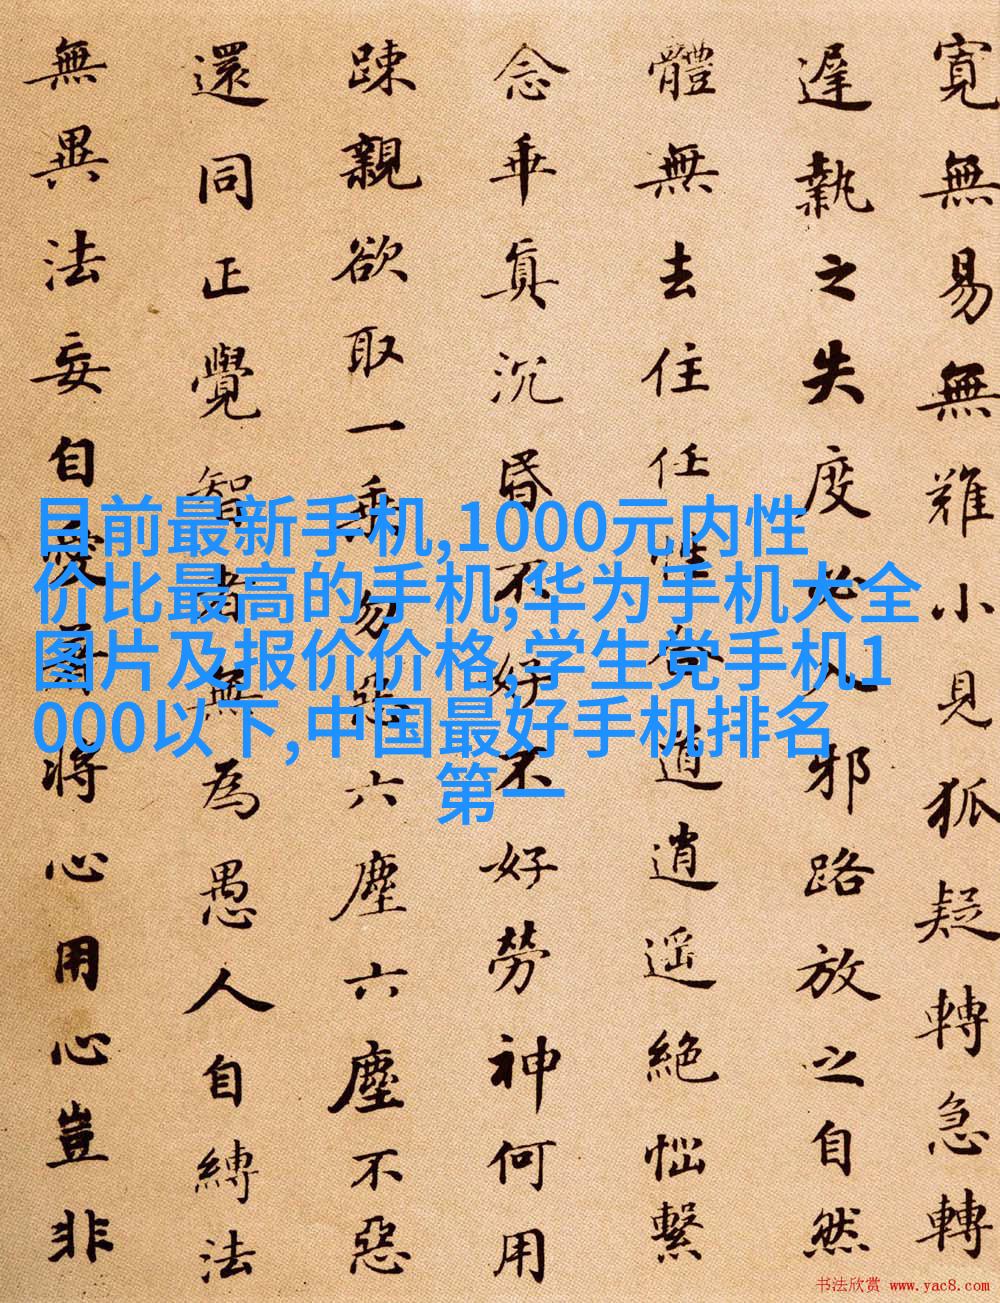 寬無易無難小見狐疑轉急轉
遲執之失度必入邪路放之自然
體無去住任性合道逍遙絕惱繫
念乖真沉昏不好不好勞神何用
踈親欲取一乘勿惡六塵六塵不惡
還同正覺智者無為愚人自縛法
無異法妄自愛著將心用心豈非
目前最新手机,1000元内性
价比最高的手机,华为手机大全
图片及报价价格,学生党手机1
000以下,中国最好手机排名
第一
书法欣赏 www.yac8.com